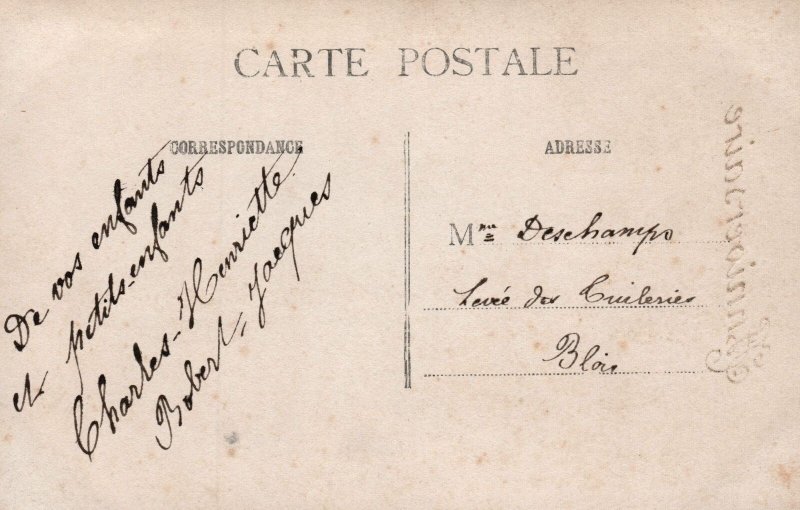 CARTE POSTALE
CORRESPONDANCE
De vos enfants
et petits-enfants
Charles - Henriette
Robert, Jacques
ADRESSE
Mme Deschamps
Levée des Tuileries
Blois